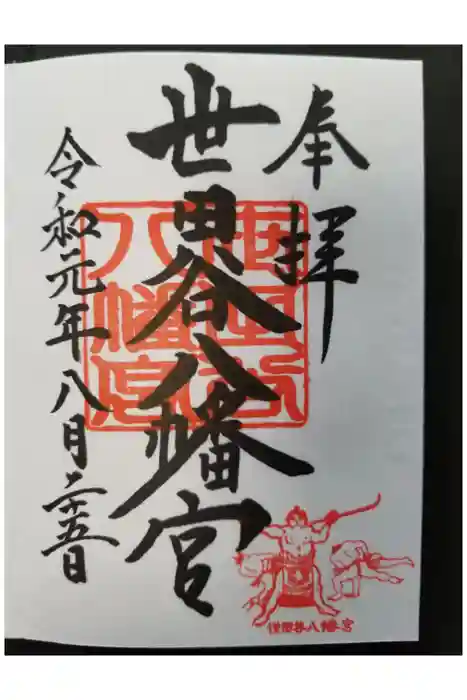 奉拝
世田谷八幡宮
世田谷八幡宮
令和元年八月二十五日
世田谷八幡宮